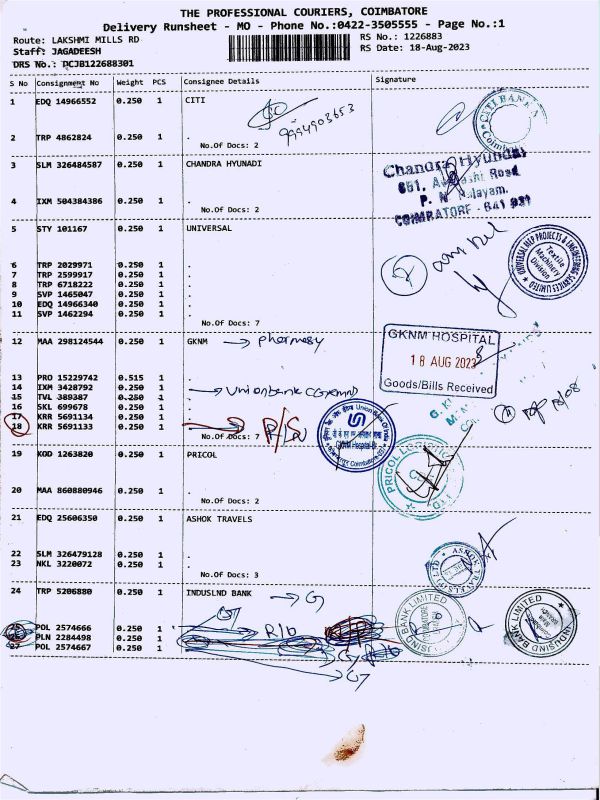 THE PROFESSIONAL COURIERS, COIMBATORE
Delivery Runsheet - MO - Phone No.:0422-3505555 - Page No.:1
Route: LAKSHMI MILLS RD
RS No.: 1226883
Staff: JAGADEESH
RS Date: 18-Aug-2023
DRS No.: PCJB122688301
S No Consignment No Weight PCS Consignee Details Signature
1 EDQ 14966552 0.250 1 CITI
9994903653
2 TRP 4862824 0.250 1 .
No.Of Docs: 2
CITI BANK
3 SLM 326484587 0.250 1 CHANDRA HYUNADI
Chandra Hyundai
651, Avinashi Road
P. N. Palayam.
COIMBATORE - 641 037
4 IXM 504384386 0.250 1 .
No.Of Docs: 2
5 STY 101167 0.250 1 UNIVERSAL
6 TRP 2029971 0.250 1 .
7 TRP 2599917 0.250 1 .
8 TRP 6718222 0.250 1 .
9 SVP 1465047 0.250 1 .
10 EDQ 14966340 0.250 1 .
11 SVP 1462294 0.250 1 .
No.Of Docs: 7
UNIVERSAL MEP PROJECTS & ENGINEERING SERVICES LIMITED
Textile
Machinery
Division
12 MAA 298124544 0.250 1 GKNM → pharmasy
GKNM HOSPITAL
18 AUG 2023
Goods/Bills Received
13 PRO 15229742 0.515 1 .
14 IXM 3428792 0.250 1 . → Unionbank
15 TVL 389387 0.250 1 .
16 SKL 699678 0.250 1 .
17 KRR 5691134 0.250 1 .
18 KRR 5691133 0.250 1 .
No.Of Docs: 7
Union Bank Of India
GKNM Hospital-Br.
19 KOD 1263820 0.250 1 PRICOL
PRICOL LOGISTICS
20 MAA 860880946 0.250 1 .
No.Of Docs: 2
21 EDQ 25606350 0.250 1 ASHOK TRAVELS
22 SLM 326479128 0.250 1 .
23 NKL 3220072 0.250 1 .
No.Of Docs: 3
24 TRP 5206880 0.250 1 INDUSLND BANK → G
25 POL 2574666 0.250 1
26 PLN 2284498 0.250 1
27 POL 2574667 0.250 1
BANK LIMITED
COIMBATORE
INDUSIND BANK LIMITED